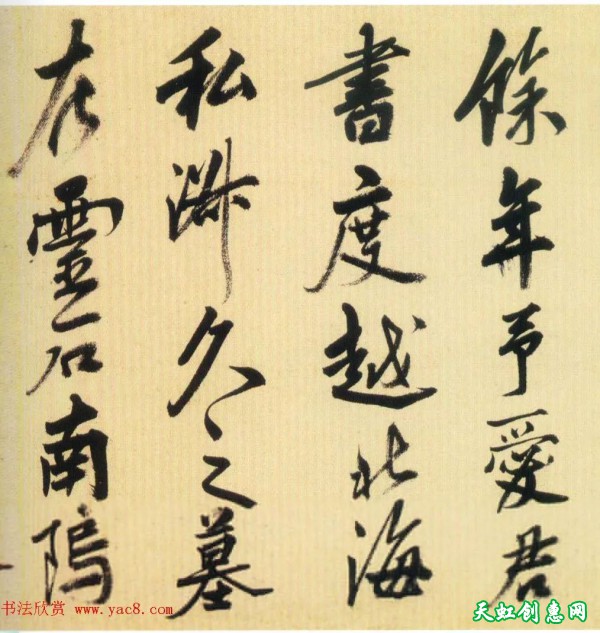 餘年予愛君
書度越北海
私淑久之墓
在靈石南塢
书法欣赏 www.yac8.com
天虹创惠网